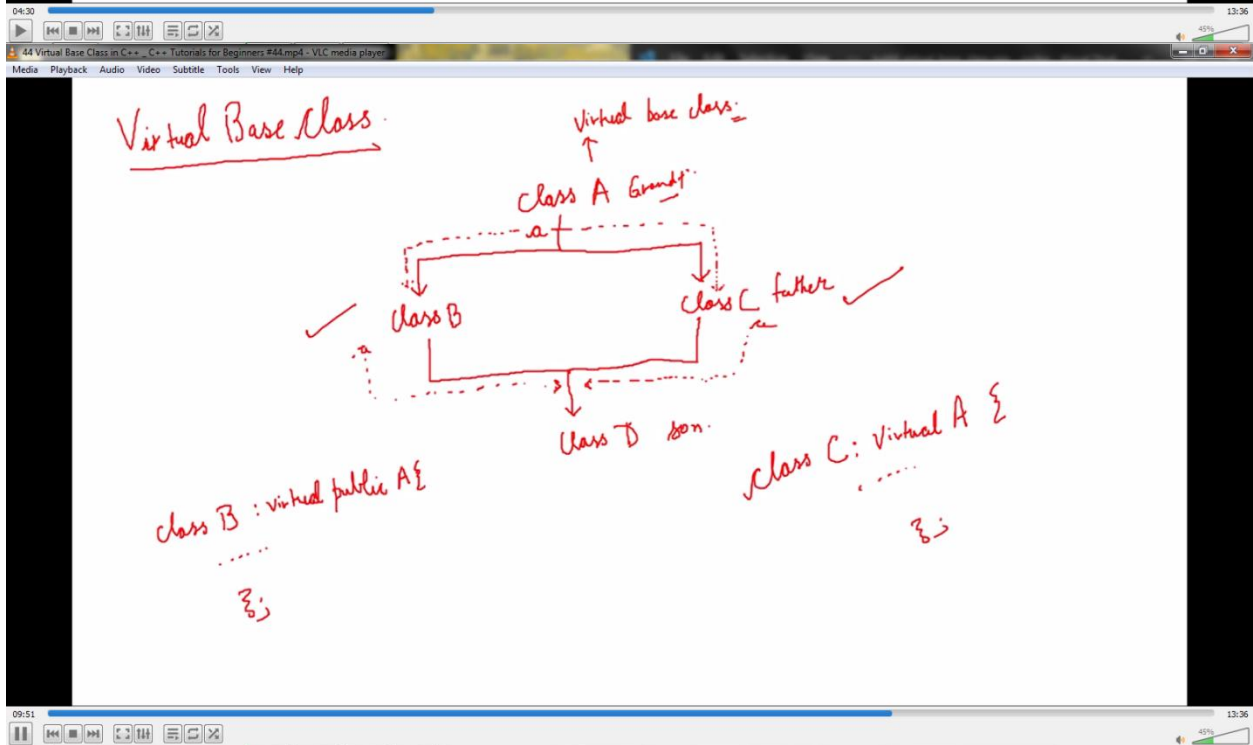 04:30 13:36
45%
44 Virtual Base Class in C++ _ C++ Tutorials for Beginners #44.mp4 - VLC media player
Media Playback Audio Video Subtitle Tools View Help
Virtual Base Class.
Virtual base class.
Class A Grandf.
a
Class B
Class C father
a a
Class D son.
class B : virtual public A{
......
};
class C : Virtual A {
......
};
09:51 13:36
45%